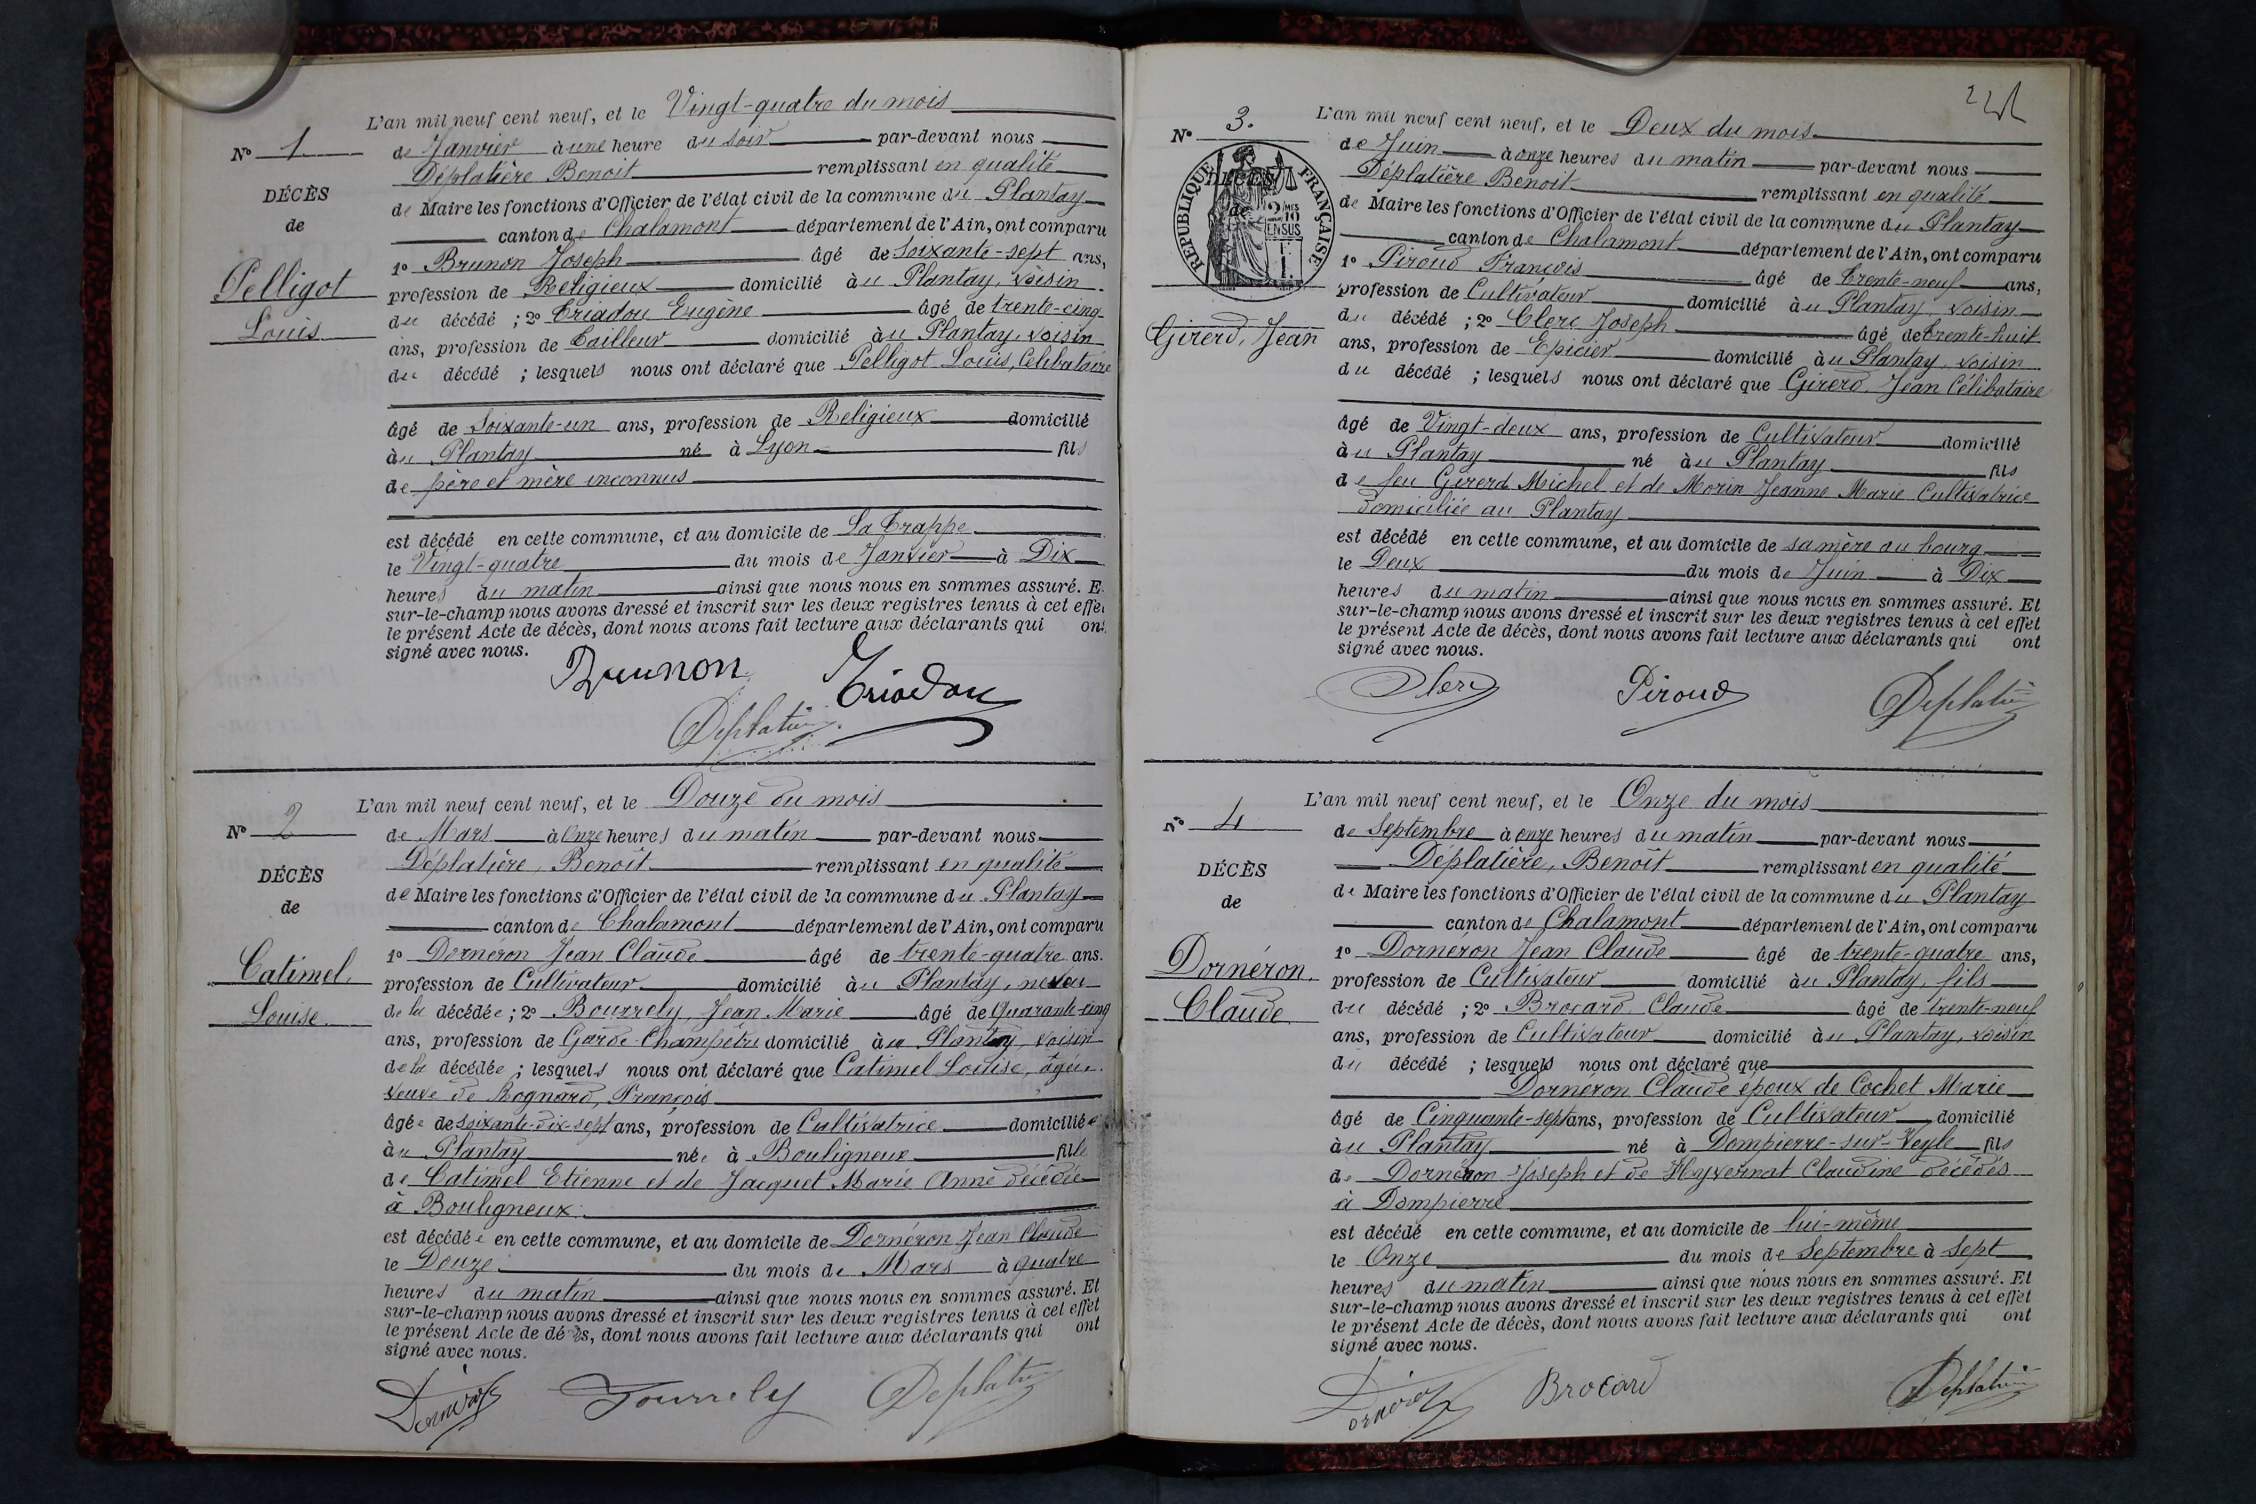 L'an mil neuf cent neuf, et le Vingt-quatre du mois
N° 1
de Janvier à une heure du soir par-devant nous
Déplatière Benoit remplissant en qualité
DÉCÈS
de Maire les fonctions d'Officier de l'état civil de la commune du Plantay
de
canton de Chalamont département de l'Ain, ont comparu
1° Brunon Joseph âgé de Soixante-sept ans,
Pelligot
profession de Religieux domicilié au Plantay, voisin
du décédé ; 2° Criadou Eugène âgé de trente-cinq
Louis
ans, profession de Tailleur domicilié au Plantay, voisin
du décédé ; lesquels nous ont déclaré que Pelligot Louis, Célibataire
âgé de Soixante-un ans, profession de Religieux domicilié
au Plantay né à Lyon fils
de père et mère inconnus
est décédé en cette commune, et au domicile de La Trappe
le Vingt-quatre du mois de Janvier à Dix
heures du matin ainsi que nous nous en sommes assuré. E
sur-le-champ nous avons dressé et inscrit sur les deux registres tenus à cet effe
le présent Acte de décès, dont nous avons fait lecture aux déclarants qui on
signé avec nous.
Brunon Criadou
Déplatière
L'an mil neuf cent neuf, et le Douze du mois
N° 2
de Mars à Onze heures du matin par-devant nous
Déplatière, Benoit remplissant en qualité
DÉCÈS
de Maire les fonctions d'Officier de l'état civil de la commune du Plantay
de
canton de Chalamont département de l'Ain, ont comparu
1° Dornéron Jean Claude âgé de trente-quatre ans.
Catimel
profession de Cultivateur domicilié au Plantay, neveu
de la décédée ; 2° Bourrely, Jean Marie âgé de Quarante-cinq
Louise
ans, profession de Garde-Champêtre domicilié au Plantay, voisin
de la décédée ; lesquels nous ont déclaré que Catimel Louise, âgée
veuve de Rognard, François
âgée de soixante-dix-sept ans, profession de Cultivatrice domiciliée
au Plantay née à Bouligneux fille
de Catimel Etienne et de Jacquet Marie Anne décédée
à Bouligneux
est décédée en cette commune, et au domicile de Dornéron Jean Claude
le Douze du mois de Mars à quatre
heures du matin ainsi que nous nous en sommes assuré. Et
sur-le-champ nous avons dressé et inscrit sur les deux registres tenus à cet effet
le présent Acte de décès, dont nous avons fait lecture aux déclarants qui ont
signé avec nous.
Dornéron Bourrely Déplatière
L'an mil neuf cent neuf, et le Deux du mois
N° 3.
de Juin à onze heures du matin par-devant nous
Déplatière Benoit remplissant en qualité
RÉPUBLIQUE FRANÇAISE
DÉCÈS
de
2/10
EN SUS
de Maire les fonctions d'Officier de l'état civil de la commune du Plantay
canton de Chalamont département de l'Ain, ont comparu
1° Piroud François âgé de trente-neuf ans,
profession de Cultivateur domicilié au Plantay, voisin
Girerd, Jean
du décédé ; 2° Clerc Joseph âgé de trente-huit
ans, profession de Epicier domicilié au Plantay, voisin
du décédé ; lesquels nous ont déclaré que Girerd, Jean Célibataire
âgé de Vingt-deux ans, profession de Cultivateur domicilié
au Plantay né au Plantay fils
de feu Girerd Michel et de Morin Jeanne Marie Cultivatrice
domiciliée au Plantay
est décédé en cette commune, et au domicile de sa mère au bourg
le Deux du mois de Juin à Dix
heures du matin ainsi que nous nous en sommes assuré. Et
sur-le-champ nous avons dressé et inscrit sur les deux registres tenus à cet effet
le présent Acte de décès, dont nous avons fait lecture aux déclarants qui ont
signé avec nous.
Clerc Piroud Déplatière
L'an mil neuf cent neuf, et le Onze du mois
N° 4
de Septembre à onze heures du matin par-devant nous
Déplatière, Benoit remplissant en qualité
DÉCÈS
de Maire les fonctions d'Officier de l'état civil de la commune du Plantay
de
canton de Chalamont département de l'Ain, ont comparu
1° Dornéron Jean Claude âgé de trente-quatre ans,
Dornéron
profession de Cultivateur domicilié au Plantay, fils
du décédé ; 2° Brocard, Claude âgé de trente-neuf
Claude
ans, profession de Cultivateur domicilié au Plantay, voisin
du décédé ; lesquels nous ont déclaré que
Dornéron Claude époux de Cochet Marie
âgé de Cinquante-sept ans, profession de Cultivateur domicilié
au Plantay né à Dompierre-sur-Veyle fils
de Dornéron Joseph et de Hyvernat Claudine décédés
à Dompierre
est décédé en cette commune, et au domicile de lui-même
le Onze du mois de Septembre à Sept
heures du matin ainsi que nous nous en sommes assuré. Et
sur-le-champ nous avons dressé et inscrit sur les deux registres tenus à cet effet
le présent Acte de décès, dont nous avons fait lecture aux déclarants qui ont
signé avec nous.
Dornéron Brocard Déplatière